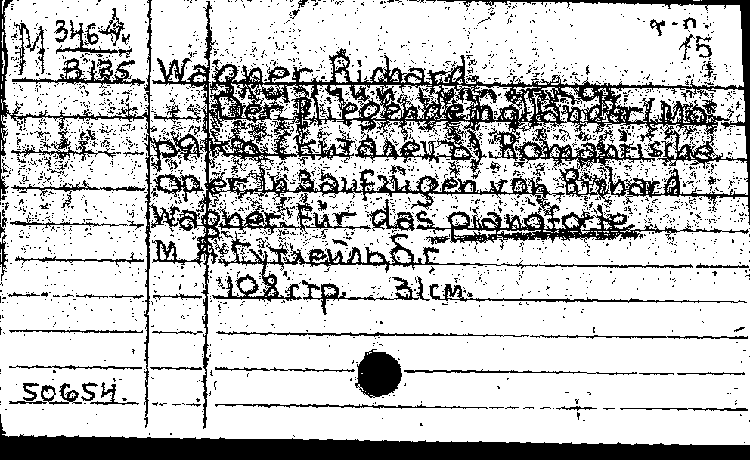 М 3464.
3135
ф-п.
15
Wagner, Richard.
Der Fliegende Holländer (Мо-
ряка скиталец). Romantische
oper in 3 aufzügen von Richard
Wagner. Für das pianoforte
М. А. Гутхейль, б. г.
108 стр. 31 см.
50654.